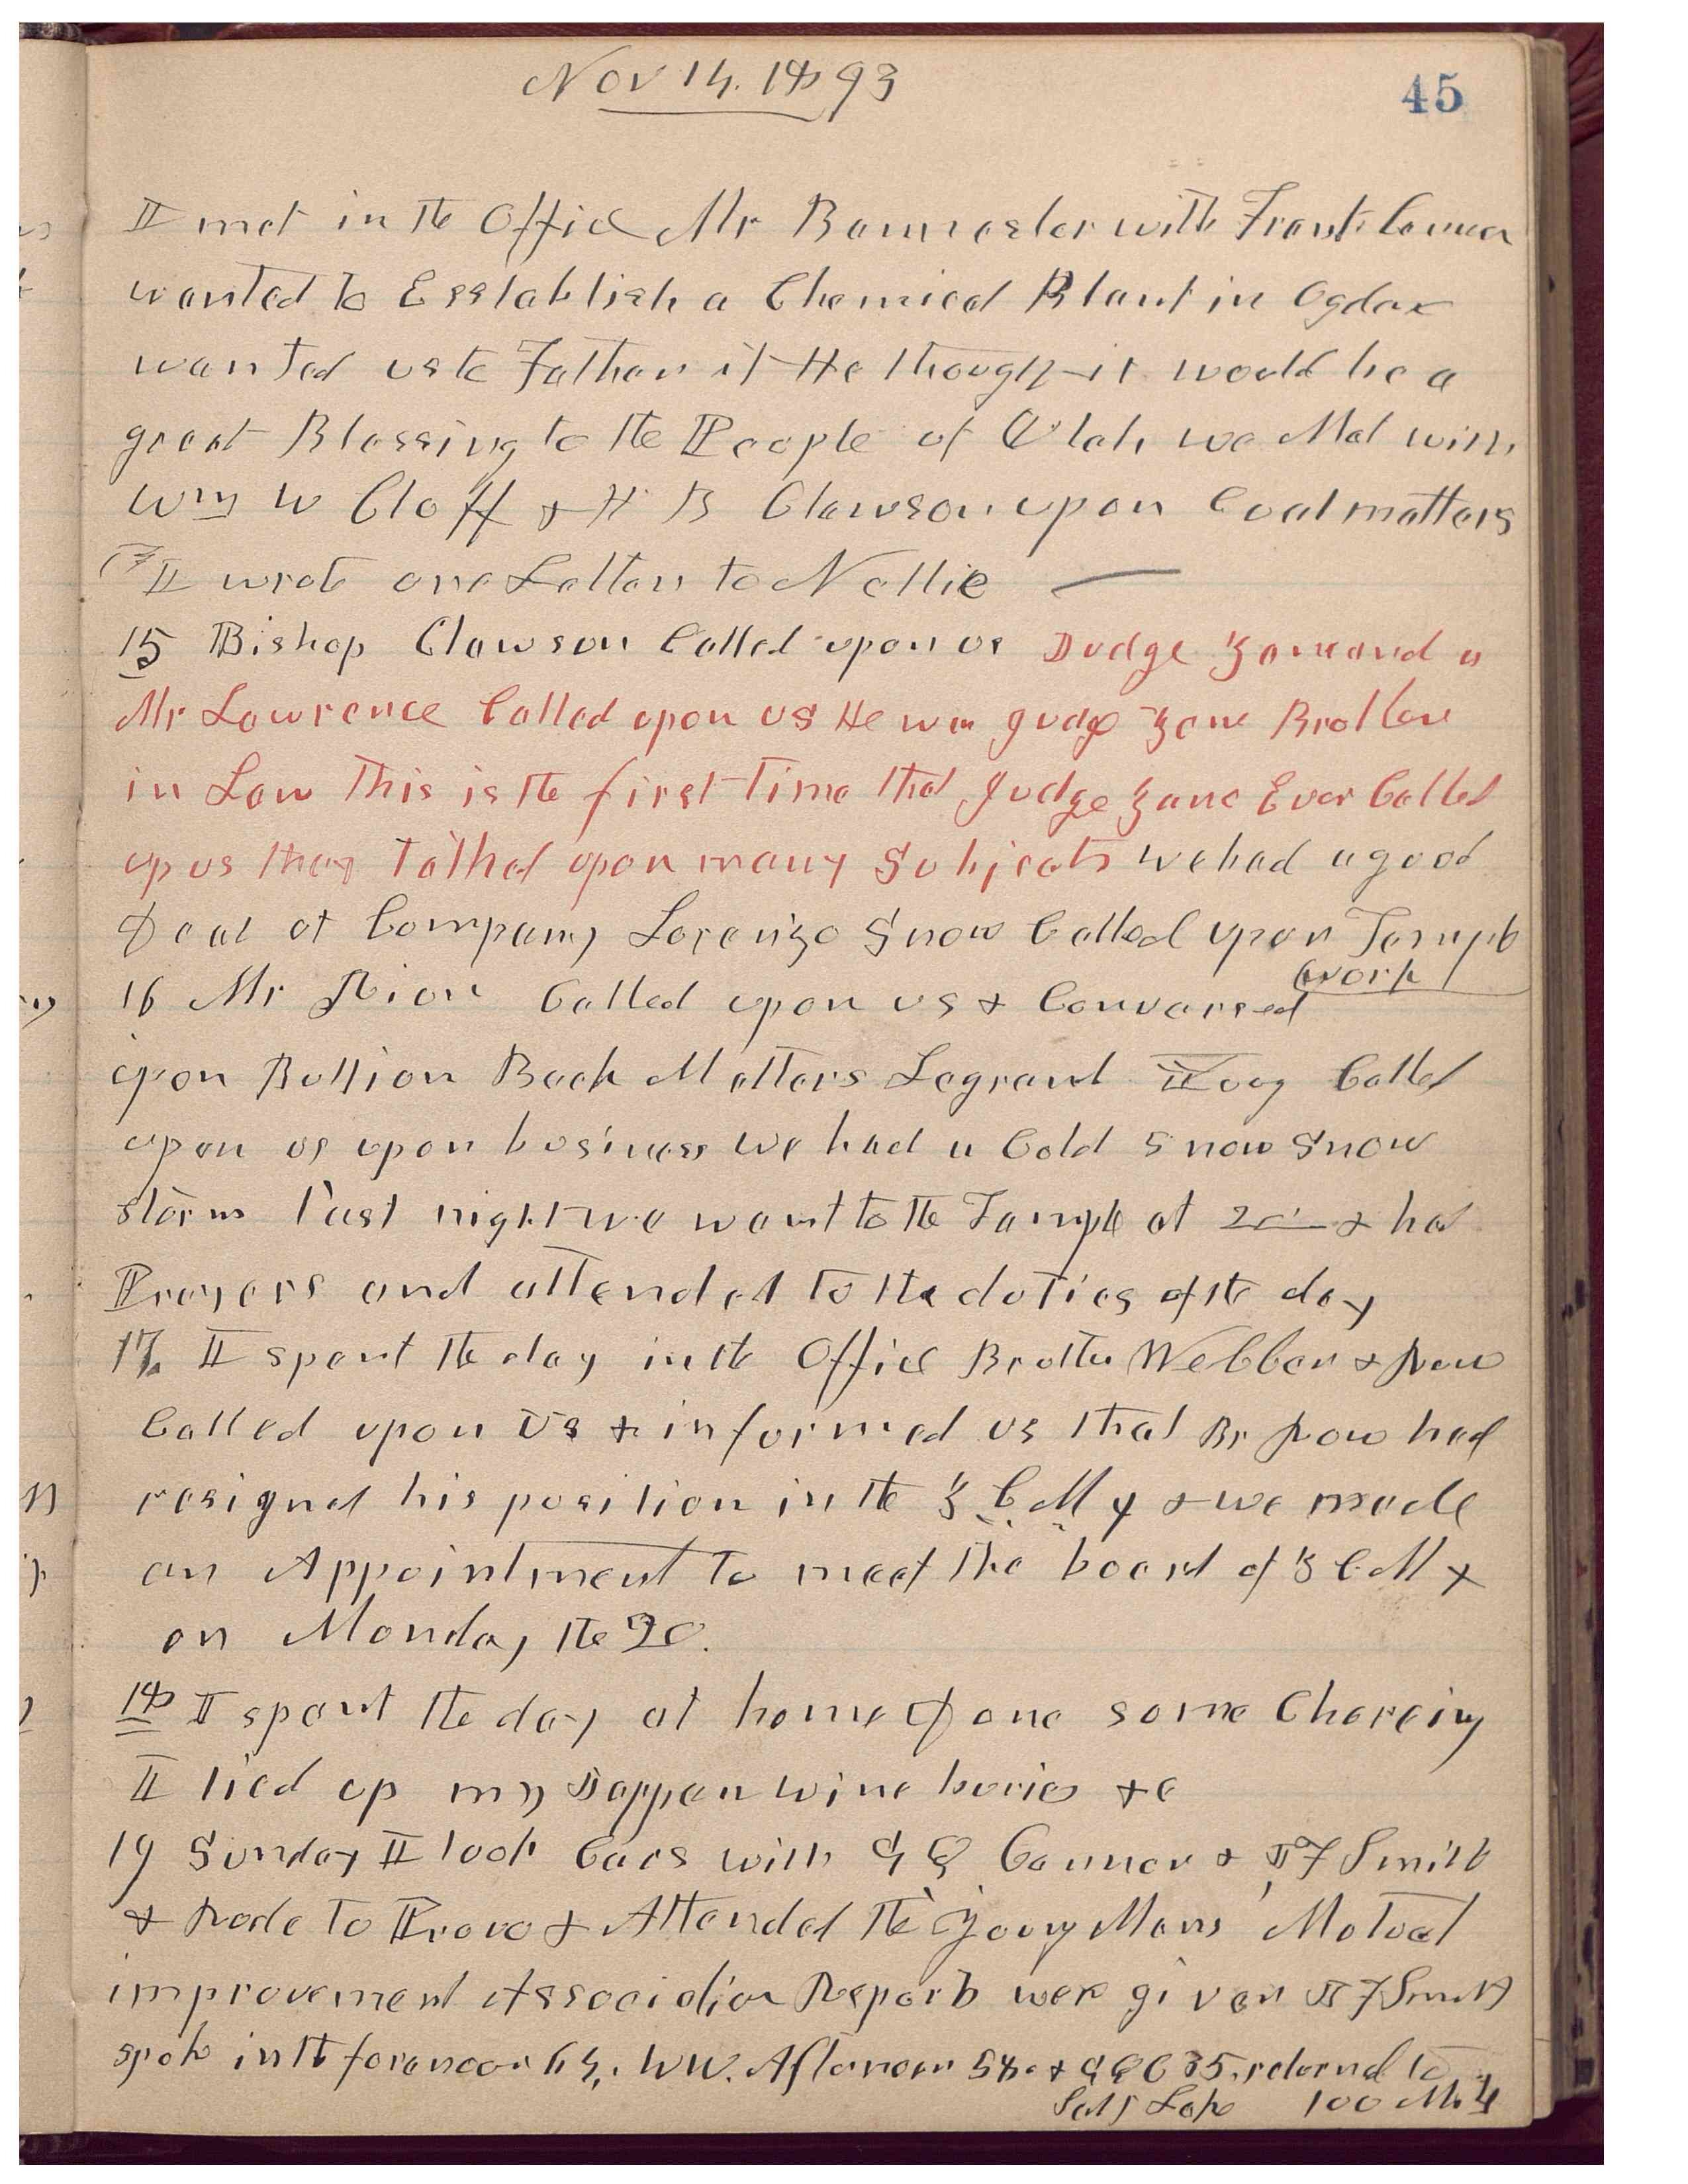 Nov 14. 1893
45
I met in the Office Mr Banmester with Frank Cannon
wanted to Esstablish a Chemical Plant in Ogden
wanted us to Father it He thought it would be a
great Blessing to the People of Utah we Met with
Wm W Cloff & H B Clawson upon Coal matters
I wrote one Letter to Nellie
15 Bishop Clawson Called upon us Judge Zane and a
Mr Lawrence Called upon us He was Judge Zane Brother
in Law This is the first Time that Judge Zane Ever Called
up us they talked upon many Subjects we had a good
Deal of Company Lorenzo Snow Called upon Temple
work
16 Mr Rion Called upon us & Conversed
upon Bullion Beck Matters Legrand Young Called
upon us upon business we had a Cold Snow Snow
storm last night we went to the Temple at 2 & had
Prayers and attended to the duties of the day
17 I spent the day in the Office Brother Webber & Row
Called upon us & informed us that Br Row had
resigned his position in the Z C M I & we made
an Appointment to meet the board of Z C M I
on Monday the 20.
18 I spent the day at home Done some Choreing
I tied up my Dappen wine buries &c
19 Sunday I took Cars with G Q Cannon & J F Smith
& Rode to Provo & Attended the Young Mens Mutual
improvement Association Reports were given J F Smith
spoke in the forenoon 63. W W. Afternoon 58. & G Q C 35. returned to
Salt Lake 100 M. 4